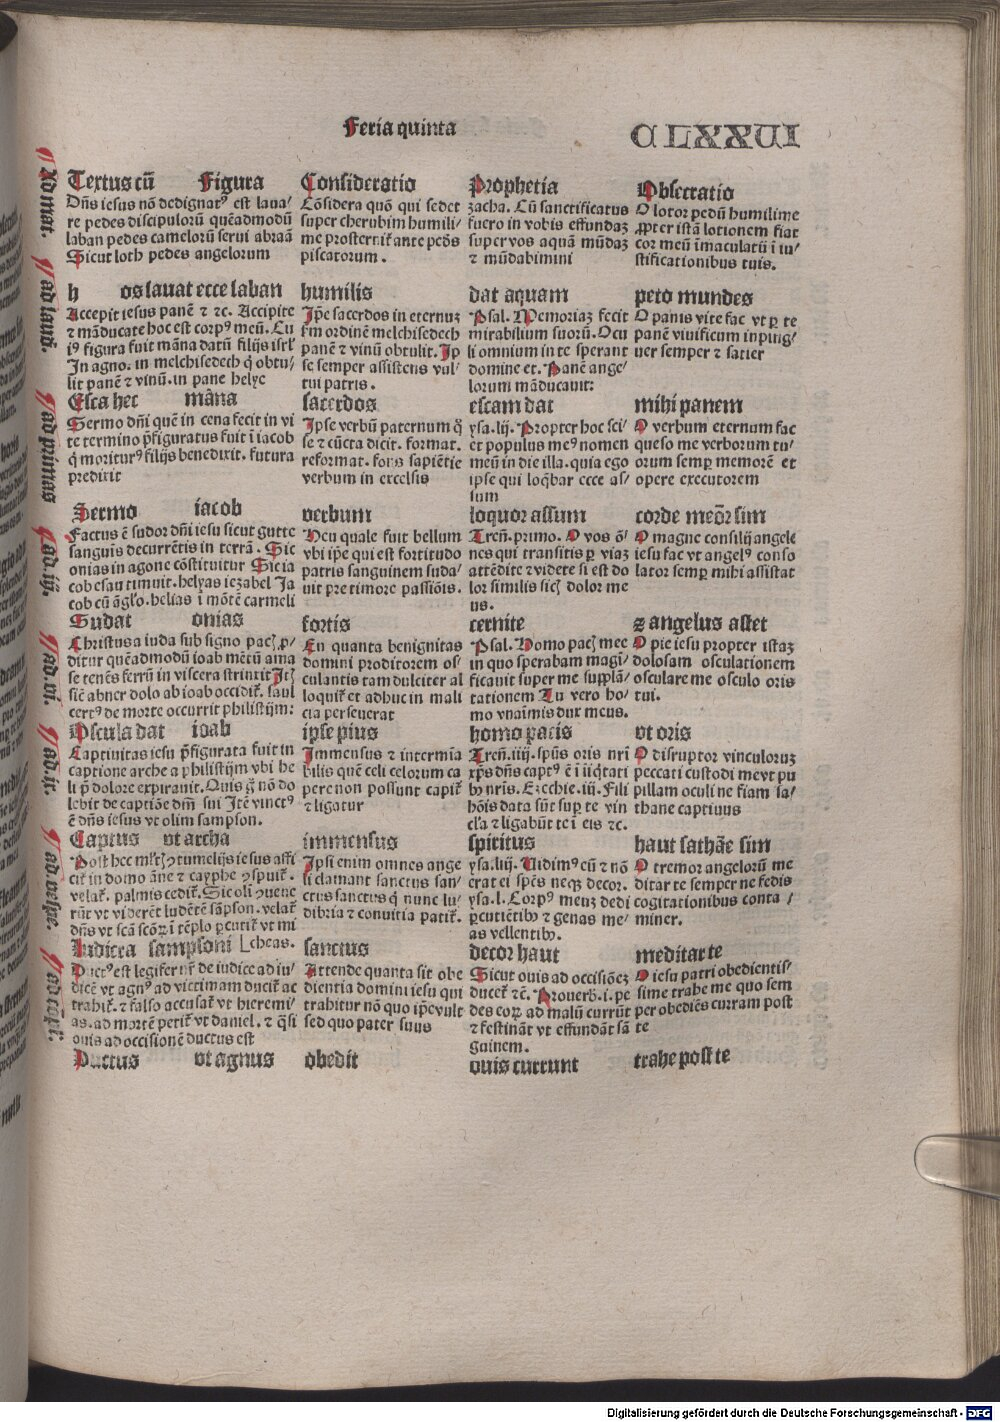 Feria quinta
CLXXVI
Textus cū Figura
Dn̄s iesus nō dedignatꝰ est laua/
re pedes discipulorū quēadmodū
laban pedes camelorū serui abraā
Sicut loth pedes angelorum
Consideratio
Cōsidera quō qui sedet
super cherubim humili/
me prosternit̃ ante pedes
piscatorum.
Prophetia
zacha. Cū sanctificatus
fuero in vobis effundaꝫ
super vos aquā mūdaꝫ
⁊ mūdabimini
Obsecratio
O lotor pedū humilime
ꝓpter istā lotionem fiat
cor meū īmaculatū ī iu/
stificationibus tuis.
Ad mat.
h os lauat ecce laban
humilis
dat aquam
peto mundes
ad laud.
Accepit iesus panē ⁊ ⁊c. Accipite
⁊ māducate hoc est corpꝰ meū. Cu
iꝰ figura fuit māna datū filijs isrl̃
In agno. in melchisedech q̄ obtu/
lit panē ⁊ vinū. in pane helye
Ip̄e sacerdos in eternuꝫ
s̄m ordinē melchisedech
panē ⁊ vinū obtulit. Ip
se semper assistens vul/
tui patris.
Psal. Memoriaꝫ fecit
mirabilium suorū. Ocu
li omnium in te sperant
domine et. Panē ange/
lorum māducauit:
O panis vite fac vt ꝑ te
panē viuificum inping/
uer semper ⁊ satier
Esca hec māna
sacerdos
escam dat
mihi panem
ad primas
Sermo dn̄i quē in cena fecit in vi
te termino p̄figuratus fuit ī iacob
q̄ moriturꝰ filijs benedixit. futura
predixit
Ipse verbū paternum q̄
se ⁊ cūcta dicit. format.
reformat. fons sapiētie
verbum in excelsis
ysa. lij. Propter hoc sci/
et populus meꝰ nomen
meū in die illa. quia ego
ipse qui loq̄bar ecce as/
sum
O verbum eternum fac
queso me verborum tu/
orum semꝑ memorē et
opere executorem
Sermo iacob
verbum
loquor assum
corde meōr sim
ad. iij.
Factus ē sudor dn̄i iesu sicut gutte
sanguis decurrētis in terrā. Sic
onias in agone cōstituitur Sic ia
cob esau timuit. helyas iezabel Ja
cob cū āglo. helias ī mōtē carmeli
Heu quale fuit bellum
vbi ip̄e qui est fortitudo
patris sanguinem suda/
uit pre timore passiōis.
Tren̄. primo. O vos ō/
nes qui transitis ꝑ viaꝫ
attēdite ⁊ videte si est do
lor similis sicut dolor me
us.
O magne consilij angele
iesu fac vt angelꝰ conso
lator semꝑ mihi assistat
Sudat onias
fortis
cernite
z angelus astet
ad. vi.
Christus a iuda sub signo pacꝭ ꝓ/
ditur quēadmodū ioab mētū ama
se tenēs ferrū in viscera strinxit Itꝫ
sic abner dolo ab ioab occidit̃. saul
certꝰ de morte occurrit philistijm:
En quanta benignitas
domini proditorem os/
culantis tam dulciter al
loquit̃ et adhuc in mali
cia perseuerat
Psal. Homo pacꝭ mee
in quo sperabam magi/
ficauit super me supplā/
tationem Tu vero ho/
mo vnaīmis dux meus.
O pie iesu propter istaꝫ
dolosam osculationem
osculare me osculo oris
tui.
Oscula dat ioab
ipse pius
homo pacis
vt oris
ad. ix.
Captiuitas iesu p̄figurata fuit in
captione arche a philistijm vbi he
li p̄ dolore expirauit. Quis ḡ nō do
lebit de captiōe dn̄i sui Itē vinctꝰ
ē dn̄s iesus vt olim sampson.
Immensus ⁊ intermia
bilis quē celi celorum ca
pere non possunt capit̃
⁊ ligatur
Tren̄. iiij. sp̄us oris nr̄i
xp̄s dn̄s captꝰ ē ī iiq̄tati
bꝫ nris. Ezechie. iij. Fili
hōis data sūt sup̱ te vin
cl̄a ⁊ ligabūt te ī eis ⁊c.
O disruptor vinculoruꝫ
peccati custodi me vt pu
pillam oculi ne fiam sa/
thane captiuus
Captus vt archa
immensus
spiritus
haut sathāe sim
ad vespe.
ysa. liij. Vidimꝰ cū ⁊ nō
erat ei sp̄ēs neqꝫ decor.
ysa. l. Corpꝰ meuꝫ dedi
ꝑcutiētibꝫ ⁊ genas me/
as vellentibꝫ.
Ipsi enim omnes ange
li clamant sanctus san/
ctus sanctus q̄ nunc lu/
dibria ⁊ conuitia patit̃.
O tremor angelorū me
ditar te semper ne fedis
cogitationibus conta/
miner.
Iudicea sampsoni
sanctus
decor haut
meditar te
ad cōpl.
Ductꝰ est legifer nr̄ de iudice ad iu/
dicē vt agnꝰ ad victimam ducit̃ ac
trahit̃. ⁊ falso accusat̃ vt hieremi/
as. ad mortē petit̃ vt daniel. ⁊ q̄si
ouis ad occisionē ductus est
Attende quanta sit obe
dientia domini iesu qui
trahitur nō quo ip̄e vult
sed quo pater suus
Sicut ouis ad occisiōeꝫ
ducet̃ ⁊c̄. Prouerb. i. pe
des eoꝝ ad malū currūt
⁊ festināt vt effundāt sā
guinem.
O iesu patri obedientis/
sime trahe me quo sem
per obediēs curram post
te
Ductus vt agnus
obedit
ouis currunt
trahe post te
Digitalisierung gefördert durch die Deutsche Forschungsgemeinschaft - DFG